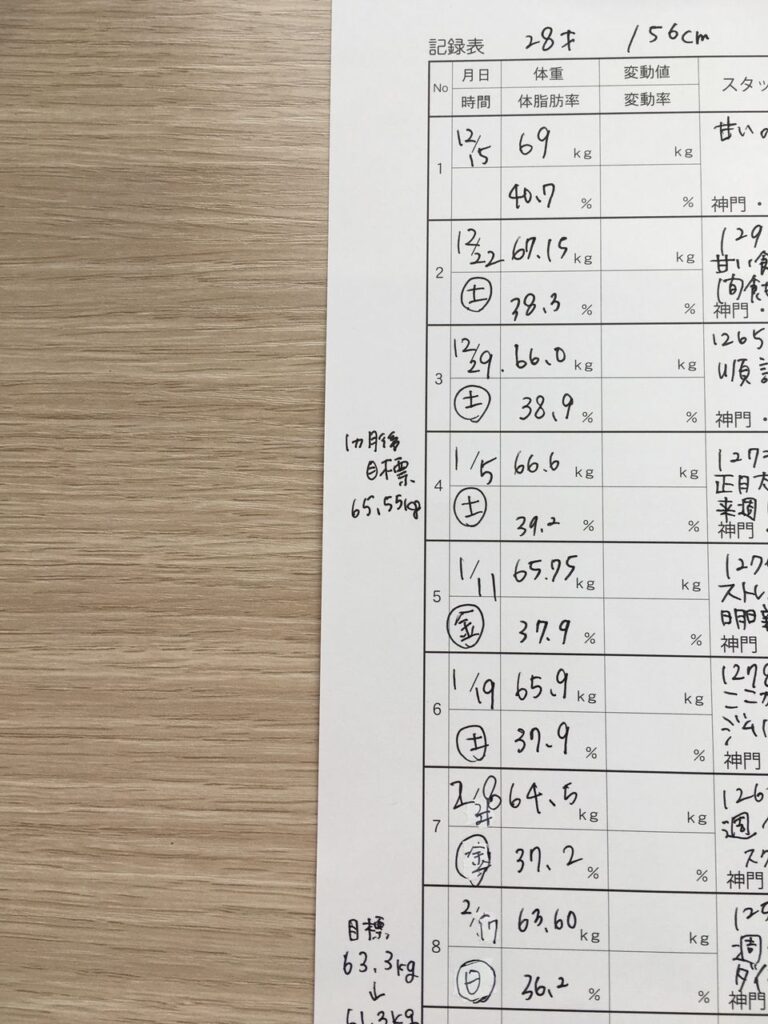 記録表 28才 156cm
No 月日 体重 変動値 スタッ
時間 体脂肪率 変動率
1 12/15 69 kg kg 甘いの
40.7 % % 神門・
2 12/22 67.15 kg kg 129
甘い飲
土 38.3 % % 神門・
3 12/29 66.0 kg kg 1265
順調
土 38.9 % % 神門・
1ヵ月後
目標
65.55kg
4 1/5 66.6 kg kg 127
正月太
来週
土 39.2 % % 神門・
5 1/11 65.75 kg kg 127
ストレ
金 37.9 % % 神門
6 1/19 65.9 kg kg 1278
ここか
ジム
土 37.9 % % 神門
7 2/8 64.5 kg kg 126
週
スク
金 37.2 % % 神門
目標
63.3kg
↓
61.3kg
8 2/17 63.60 kg kg 12
週
ダイ
日 36.2 % % 神門